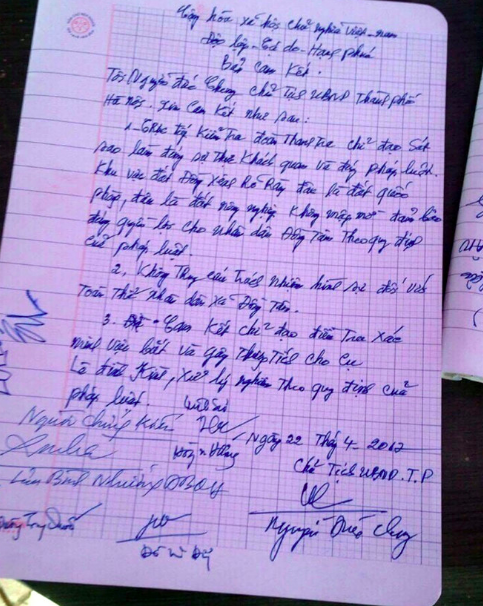 Cộng hòa xã hội chủ nghĩa Việt-nam
Độc lập - Tự do - Hạnh phúc
Bản Cam Kết.
Tôi Nguyễn Đức Chung, chủ tịch UBND Thành phố
Hà Nội. xin Cam Kết như sau:
1. Trực tiếp Kiểm Tra đoàn Thanh Tra chỉ đạo Sát
sao làm đúng sự thật Khách quan và đúng pháp luật.
Khu vực đất Đồng Sênh Rõ Ràng đâu là đất quốc
phòng, đâu là đất nông nghiệp Không mập mờ đảm bảo
đúng quyền lợi cho nhân dân Đồng Tâm Theo quy định
của pháp luật.
2. Không Truy cứu Trách nhiệm hình sự đối với
Toàn Thể nhân dân xã Đồng Tâm.
3. Cam Kết chỉ đạo điều Tra Xác
minh việc bắt và gây Thương Tích cho Cụ
Lê Đình Kình, Xử lý nghiêm Theo quy định của
pháp luật.
Người chứng Kiến Ngày 22 Thg 4-2017
Chủ Tịch UBND.T.P
Lưu Bình Nhưỡng ĐBQH
Nguyễn Đức Chung